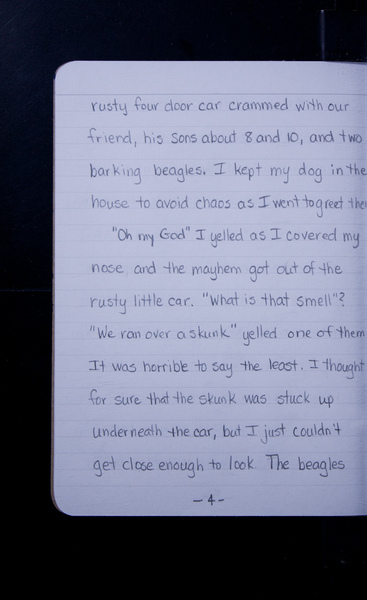 rusty four door car crammed with our
friend, his sons about 8 and 10, and two
barking beagles. I kept my dog in the
house to avoid chaos as I went to greet
"Oh my God" I yelled as I covered my
nose and the mayhem got out of the
rusty little car. "What is that smell"?
"We ran over a skunk" yelled one of them
It was horrible to say the least. I thought
for sure that the skunk was stuck up
underneath the car, but I just couldn't
get close enough to look. The beagles
- 4 -